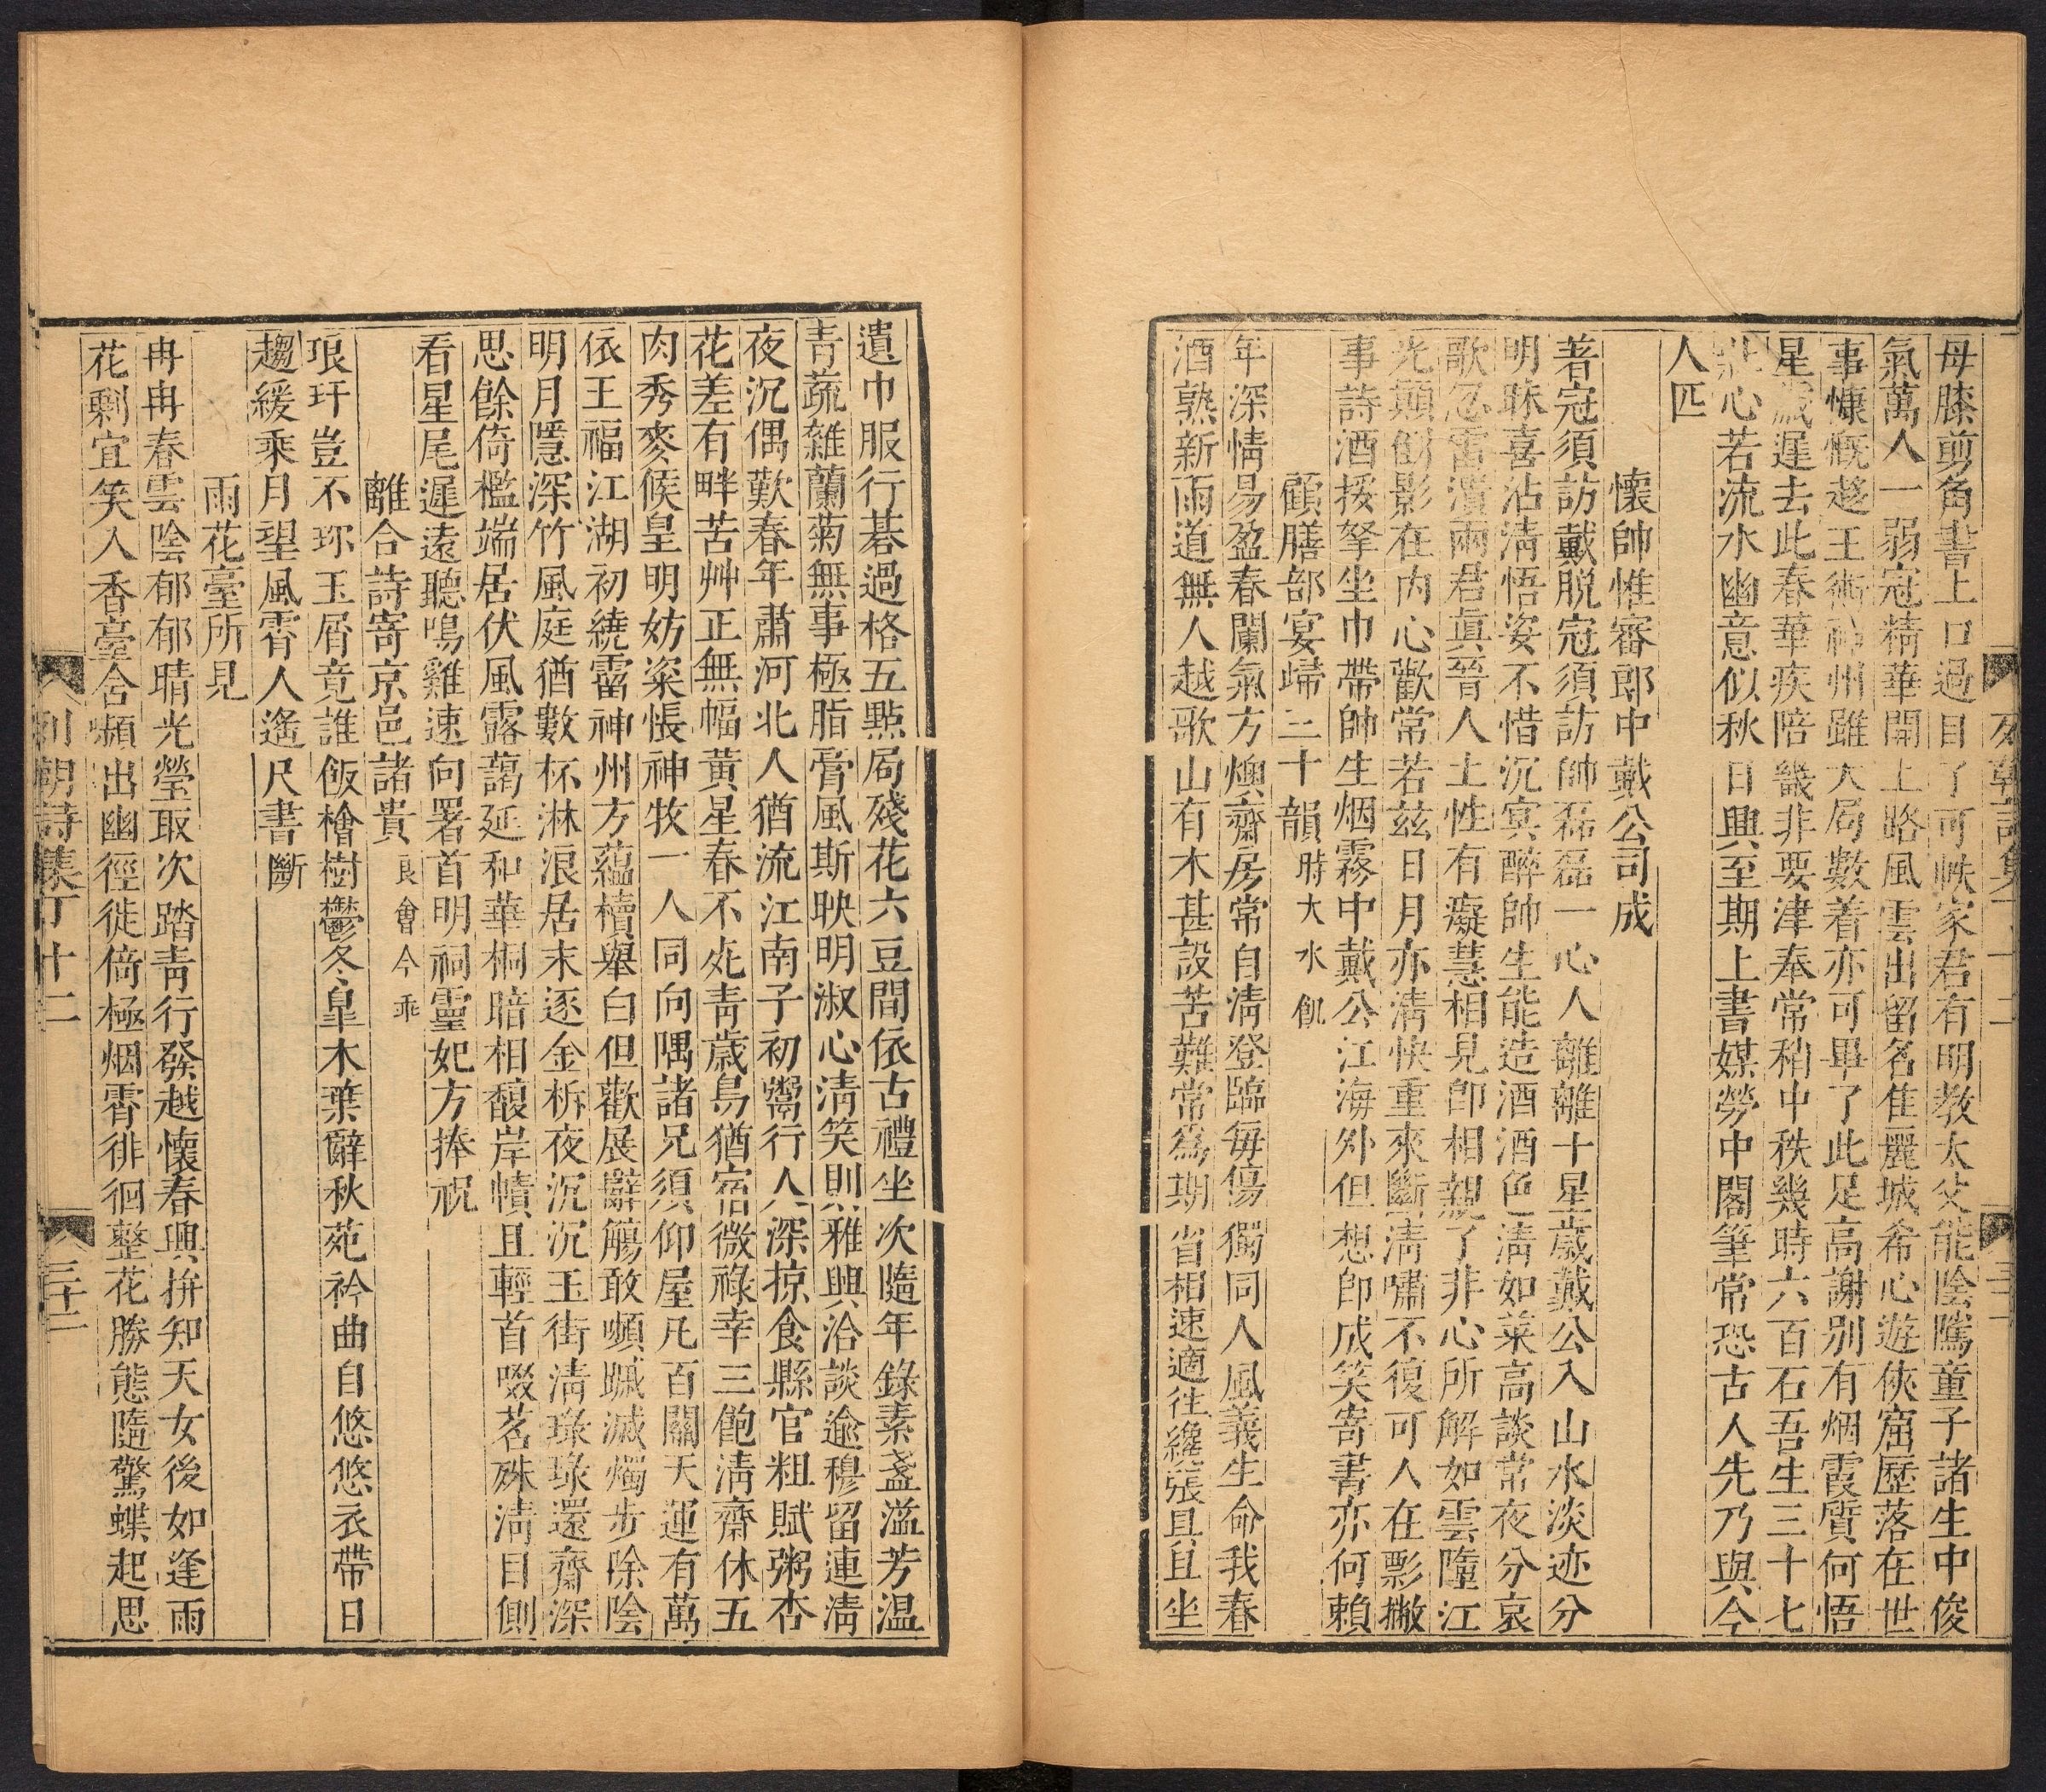 母膝剪角書上口過目了可帙家君有明教太父能陰隲童子諸生中俊
氣萬人一弱冠精華開上路風雲出留名隹麗城希心遊俠窟歷落在世
事慷慨趍王術神州雖大局數着亦可畢了此足高謝别有烟霞質何悟
星歲遲去此春華疾陪畿非要津奉常稍中秩幾時六百石吾生三十七
壯心若流水幽意似秋日興至期上書媒勞中閣筆常恐古人先乃與今
人匹
懷帥惟審郎中戴公司成
著冠須訪戴脱冠須訪帥磊磊一心人離離十星歲戴公入山水淡迹分
明昧喜沾淸悟姿不惜沉冥醉帥生能造酒酒色淸如菜高談常夜分哀
歌忽雷潰兩君眞晉人土性有癡慧相見卽相親了非心所解如雲墮江
光顛倒影在内心歡常若兹日月亦淸快重來斷淸嘯不復可人在影撇
事詩酒挼拏坐巾帶帥生烟霧中戴公江海外但想卽成笑寄書亦何賴
顧膳部宴歸三十韻 時大水飢
年深情易盈春闌氣方燠齋房常自淸登臨每傷獨同人風義生命我春
酒熟新雨道無人越歌山有木甚設苦難常爲期省相速適徃纔張具且坐
遺巾服行碁過格五點局殘花六豆間依古禮坐次隨年錄素盞滋芳温
靑蔬雜蘭菊無事極脂膏風斯映明淑心淸笑則雅興洽談逾穆留連淸
夜沉偶歎春年肅河北人猶流江南子初鬻行人深掠食縣官粗賦粥杏
花差有畔苦艸正無幅黃星春不兆靑歲鳥猶宿微祿幸三飽淸齋休五
肉秀麥候皇明妨粢悵神牧一人同向隅諸兄須仰屋凡百關天運有萬
依王福江湖初繞霤神州方蘊櫝舉白但歡展辭觴敢嚬蹙滅燭步除陰
明月隱深竹風庭猶數杯淋浪居末逐金柝夜沉沉玉街淸琭琭還齋深
思餘倚檻端居伏風露藹延和華桐暗相馥岸幘且輕首啜茗殊淸目側
看星尾遲遠聽鳴雞速向署首明祠靈妃方捧祝
離合詩寄京邑諸貴 良會今乖
琅玕豈不珎玉屑竟誰飯檜樹鬱冬皐木葉辭秋苑衿曲自悠悠衣帶日
趨緩乘月望風霄人遙尺書斷
雨花臺所見
冉冉春雲陰郁郁晴光瑩取次踏靑行發越懷春興拚知天女後如逢雨
花剩宜笑入香臺含嚬出幽徑徙倚極烟霄徘徊整花勝態隨驚蝶起思
列朝詩集丁十二
三十二